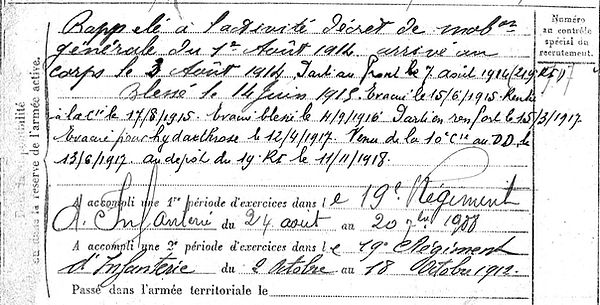 Rappelé à l'activité décret de mob^on
générale du 1er Août 1914 arrivé au
corps le 3 Août 1914 Parti au front le 7 août 1914 (219 RI)
Blessé le 14 Juin 1915. Evacué le 15/6/1915. Rentré
à la Cie le 17/8/1915. Evacué blessé le 4/9/1916 Parti en renfort le 15/3/1917
Evacué pour hydarthrose le 12/4/1917. Venu de la 10e Cie au D.D. le
13/6/1917. au depôt du 19 RI le 11/11/1918.
A accompli une 1re période d'exercices dans l e 19e Régiment
d'Infanterie du 24 août au 20 1908
A accompli une 2e période d'exercices dans l e 19e Régiment
d'Infanterie du 2 Octobre au 18 Octobre 1912.
Passé dans l'armée territoriale le
Numéro
au contrôle
spécial du
recrutement.
ou dans la réserve de l'armée active.